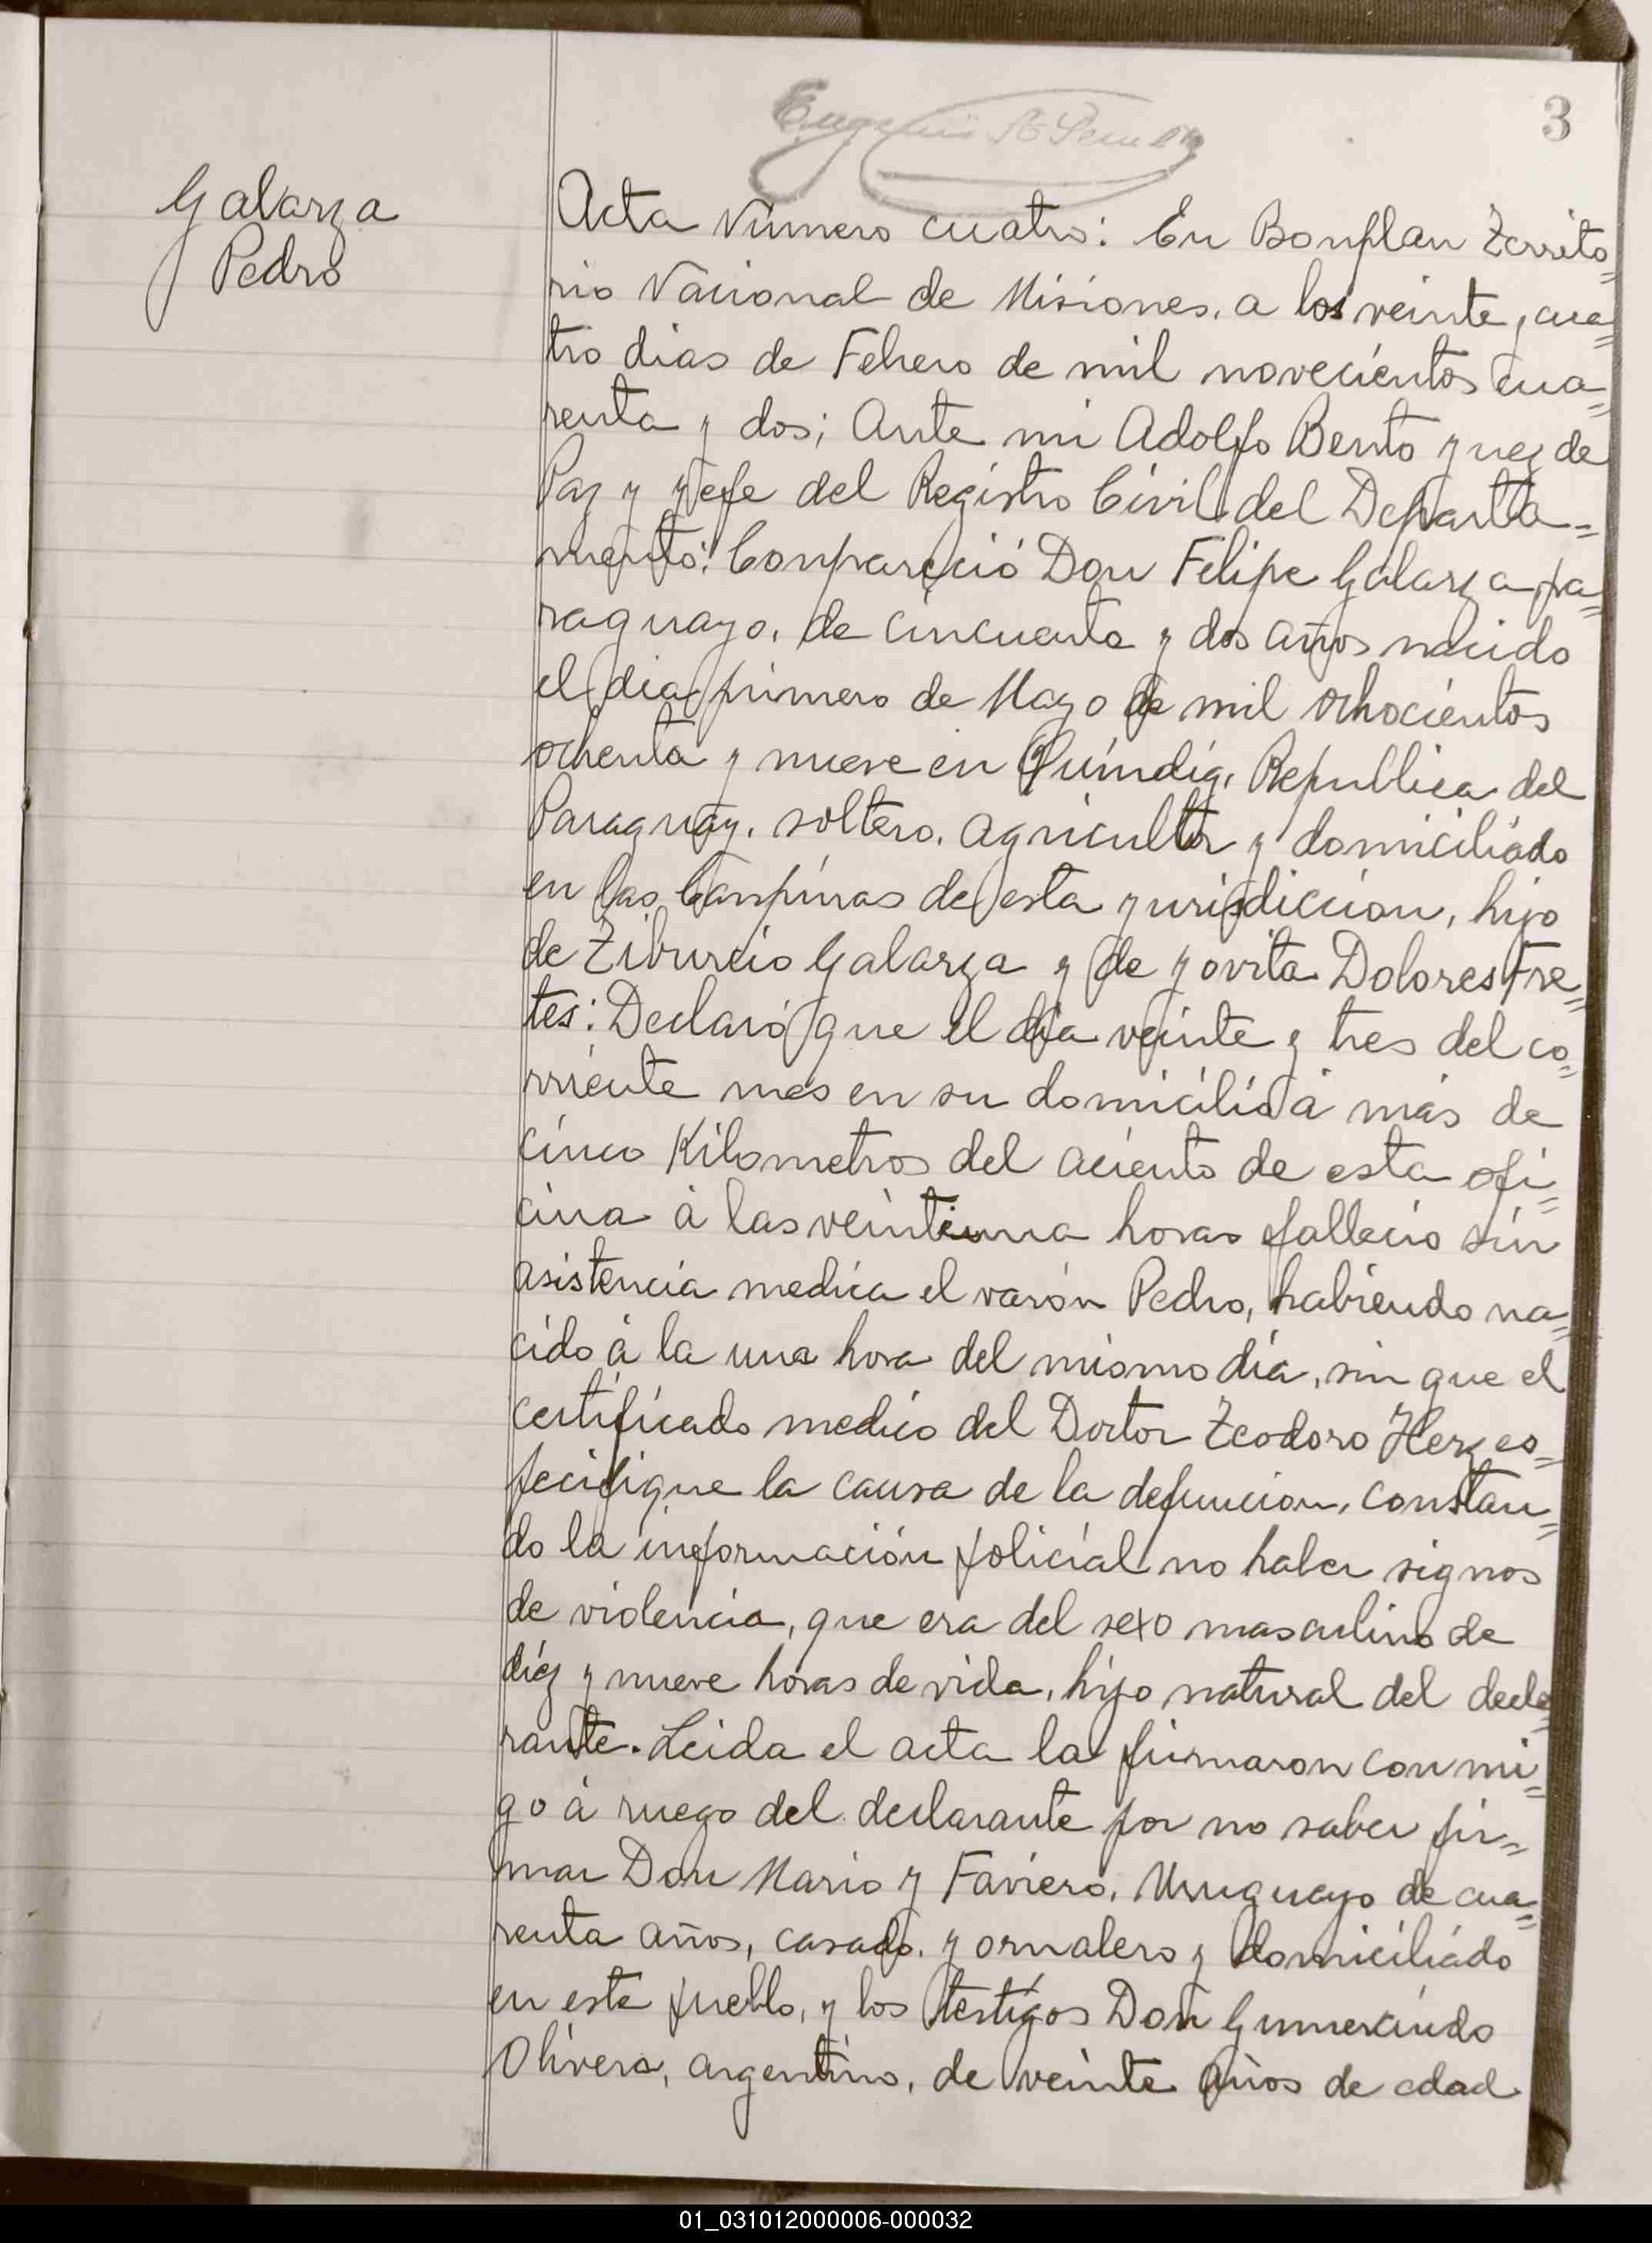 3
Galarza
Pedro
Acta Número cuatro: En Bonplan Territo=
rio Nacional de Misiones, a los veinte y cua=
tro dias de Febrero de mil novecientos cua=
renta y dos; Ante mi Adolfo Bento Yuez de
Paz y Yefe del Registro Civil del Departa=
mento: Compareció Don Felipe Galarza pa=
raguayo, de cincuenta y dos años nacido
el dia primero de Mayo de mil ochocientos
ochenta y nueve en Quindig, Republica del
Paraguay, soltero, agricultor y domiciliado
en las Campinas de esta yurisdiccion, hijo
de Tiburcio Galarza y de Yovita Dolores Fre=
tes: Declaró que el día veinte y tres del co=
rriente mes en su domicilio á más de
cinco Kilometros del aciento de esta ofi=
cina á las veintiuna horas fallecio sin
asistencia medica el varón Pedro, habiendo na=
cido á la una hora del mismo día, sin que el
certificado medico del Doctor Teodoro Herz es=
pecifique la causa de la defuncion, constan=
do la información policial no haber signos
de violencia, que era del sexo masculino de
diez y nueve horas de vida, hijo natural del decla=
rante. Leida el acta la firmaron conmi=
go á ruego del declarante por no saber fir=
mar Don Mario Y Faviero, Uruguayo de cua=
renta años, casado, yornalero y domiciliado
en este pueblo, y los testigos Don Gumercindo
Olivera, argentino, de veinte años de edad
01_031012000006-000032